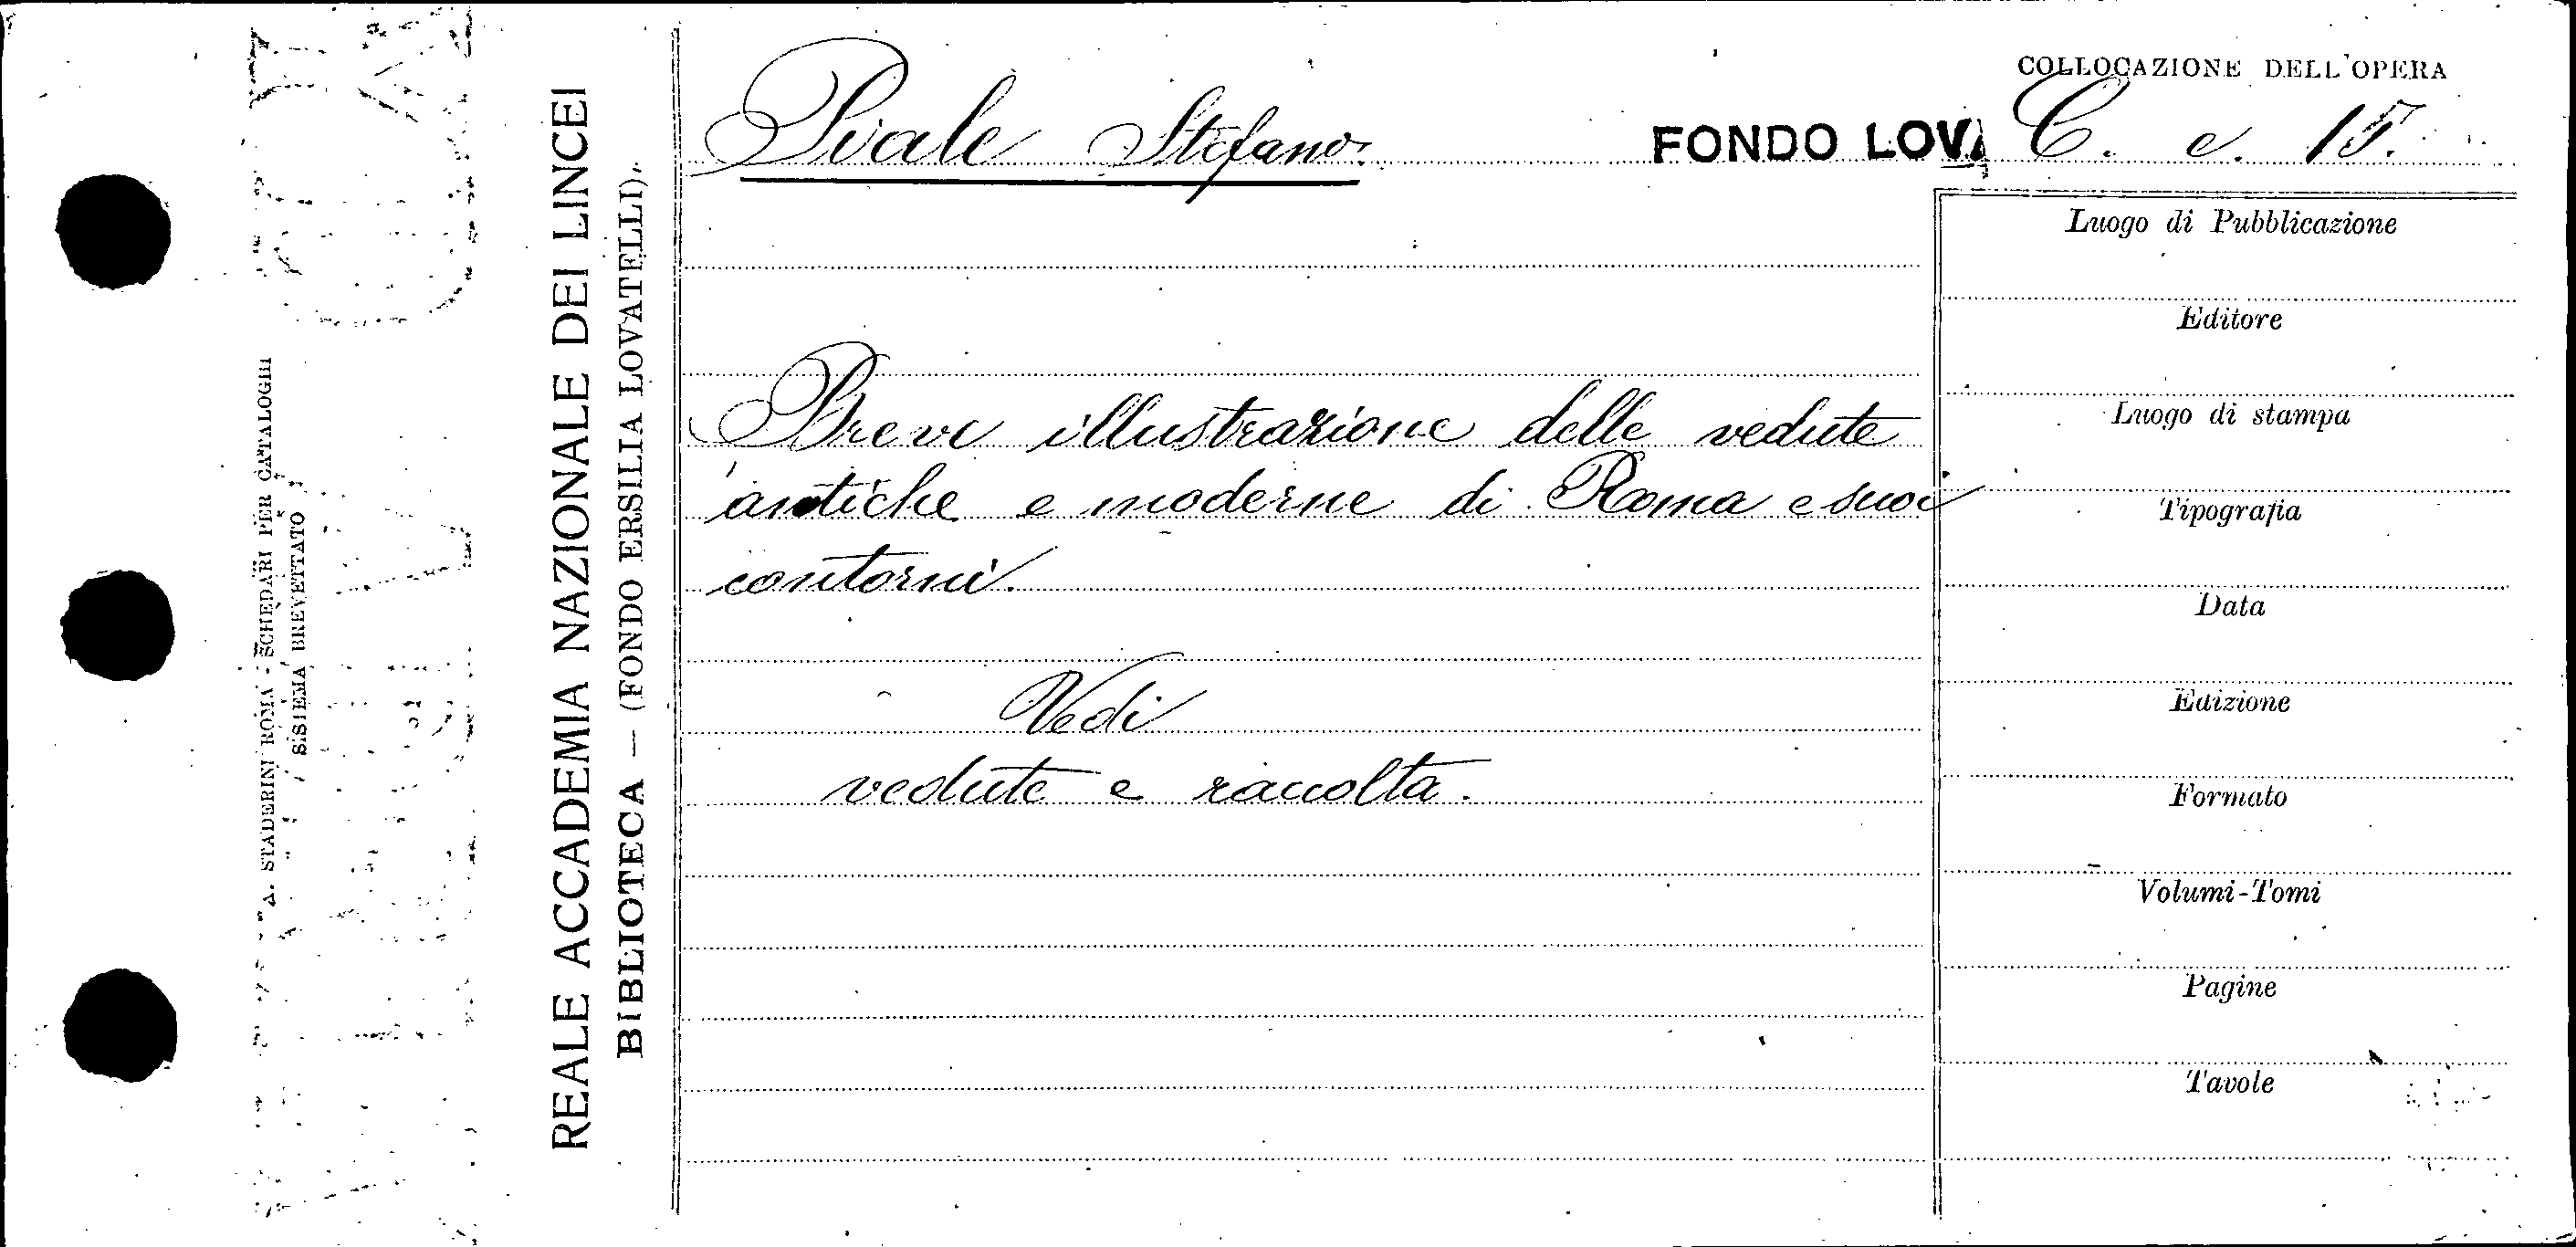 A. STADERINI ROMA - SCHEDARI PER CATALOGHI
SISTEMA BREVETTATO
REALE ACCADEMIA NAZIONALE DEI LINCEI
BIBLIOTECA — (FONDO ERSILIA LOVATELLI)
COLLOCAZIONE DELL'OPERA
Piale Stefano. FONDO LOVA C. e. 15.
Breve illustrazione delle vedute
antiche e moderne di Roma e suoi
contorni.
Vedi
vedute e raccolta.
Luogo di Pubblicazione
Editore
Luogo di stampa
Tipografia
Data
Edizione
Formato
Volumi-Tomi
Pagine
Tavole